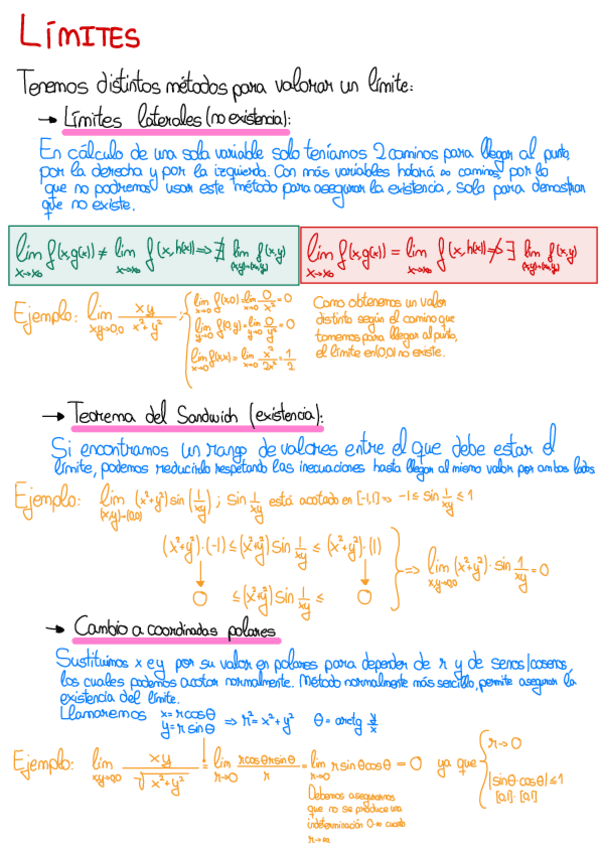 LÍMITES
Tenemos distintos métodos para valorar un límite:
→ Límites laterales (no existencia):
En cálculo de una sola variable solo teníamos 2 caminos para llegar al punto,
por la derecha y por la izquierda. Con más variables habrá ∞ caminos, por lo
que no podremos usar este método para asegurar la existencia, solo para demostrar
que no existe.
lim f(x,g(x)) ≠ lim f(x,h(x)) => ∄ lim f(x,y)
x→x₀ x→x₀ (x,y)→(x₀,y₀)
lim f(x,g(x)) = lim f(x,h(x)) ≠> ∃ lim f(x,y)
x→x₀ x→x₀ (x,y)→(x₀,y₀)
Ejemplo: lim xy / x²+y² ;
x,y→0,0
lim f(x,0) = lim 0/x² = 0
x→0 x→0
lim f(0,y) = lim 0/y² = 0
y→0 y→0
lim f(x,x) = lim x²/2x² = 1/2
x→0 x→0
Como obtenemos un valor
distinto según el camino que
tomemos para llegar al punto,
el límite en (0,0) no existe.
→ Teorema del Sandwich (existencia):
Si encontramos un rango de valores entre el que debe estar el
límite, podemos reducirlo respetando las inecuaciones hasta llegar al mismo valor por ambos lados.
Ejemplo: lim (x²+y²) sin (1/xy) ; sin 1/xy está acotado en [-1,1] => -1 ≤ sin 1/xy ≤ 1
(x,y)→(0,0)
(x²+y²)·(-1) ≤ (x²+y²) sin 1/xy ≤ (x²+y²)·(1)
=> lim (x²+y²)·sin 1/xy = 0
x,y→0,0
0 ≤ (x²+y²) sin 1/xy ≤ 0
→ Cambio a coordinadas polares
Sustituimos x e y por su valor en polares para depender de r y de senos/cosenos,
los cuales podemos acotar normalmente. Método normalmente más sencillo, permite asegurar la
existencia del límite.
Llamaremos x = r cosθ
y = r sinθ => r² = x²+y² θ = arctg y/x
Ejemplo: lim xy / √x²+y² = lim r cosθ r sinθ / r = lim r sinθ cosθ = 0 ya que
x,y→0,0 r→0 r→0
r→0
|sinθ·cosθ| ≤ 1
[0,1]·[0,1]
Debemos asegurarnos
que no se produce una
indeterminación 0·∞ cuando
r→∞